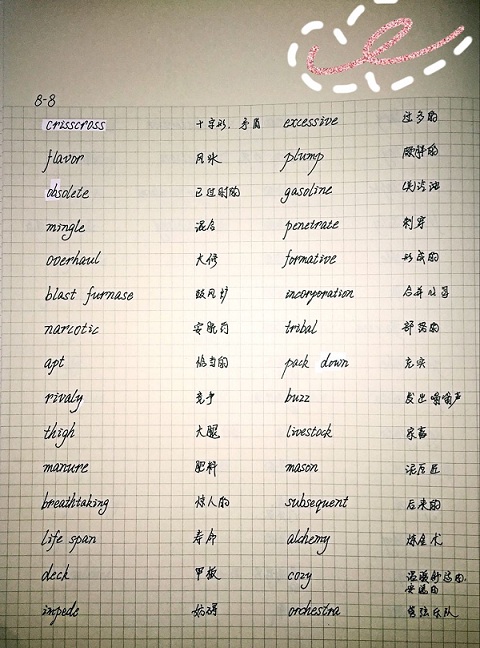 8-8
crisscross 十字形, 矛盾 excessive 过多的
flavor 风味 plump
obsolete 已过时的 gasoline 汽油
mingle 混合 penetrate 刺穿
overhaul 大修 formative 形成的
blast furnase 鼓风炉 incorporation 合并
narcotic 安眠药 tribal 部落的
apt 恰当的 pack down 充实
rivaly 竞争 buzz 发出嗡嗡声
thigh 大腿 livestock 家畜
manure 肥料 mason 泥瓦匠
breathtaking 惊人的 subsequent 后来的
life span 寿命 alchemy 炼金术
deck 甲板 cozy 温暖舒适的,
安逸的
impede 妨碍 orchestra 管弦乐队